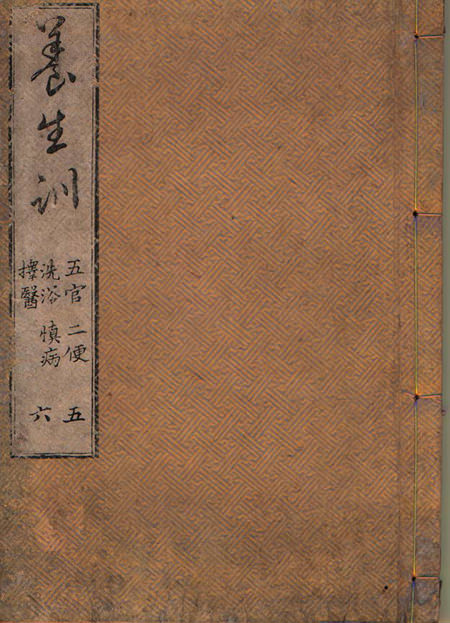 養生訓
五官 二便 五
洗浴 慎病 六
擇醫